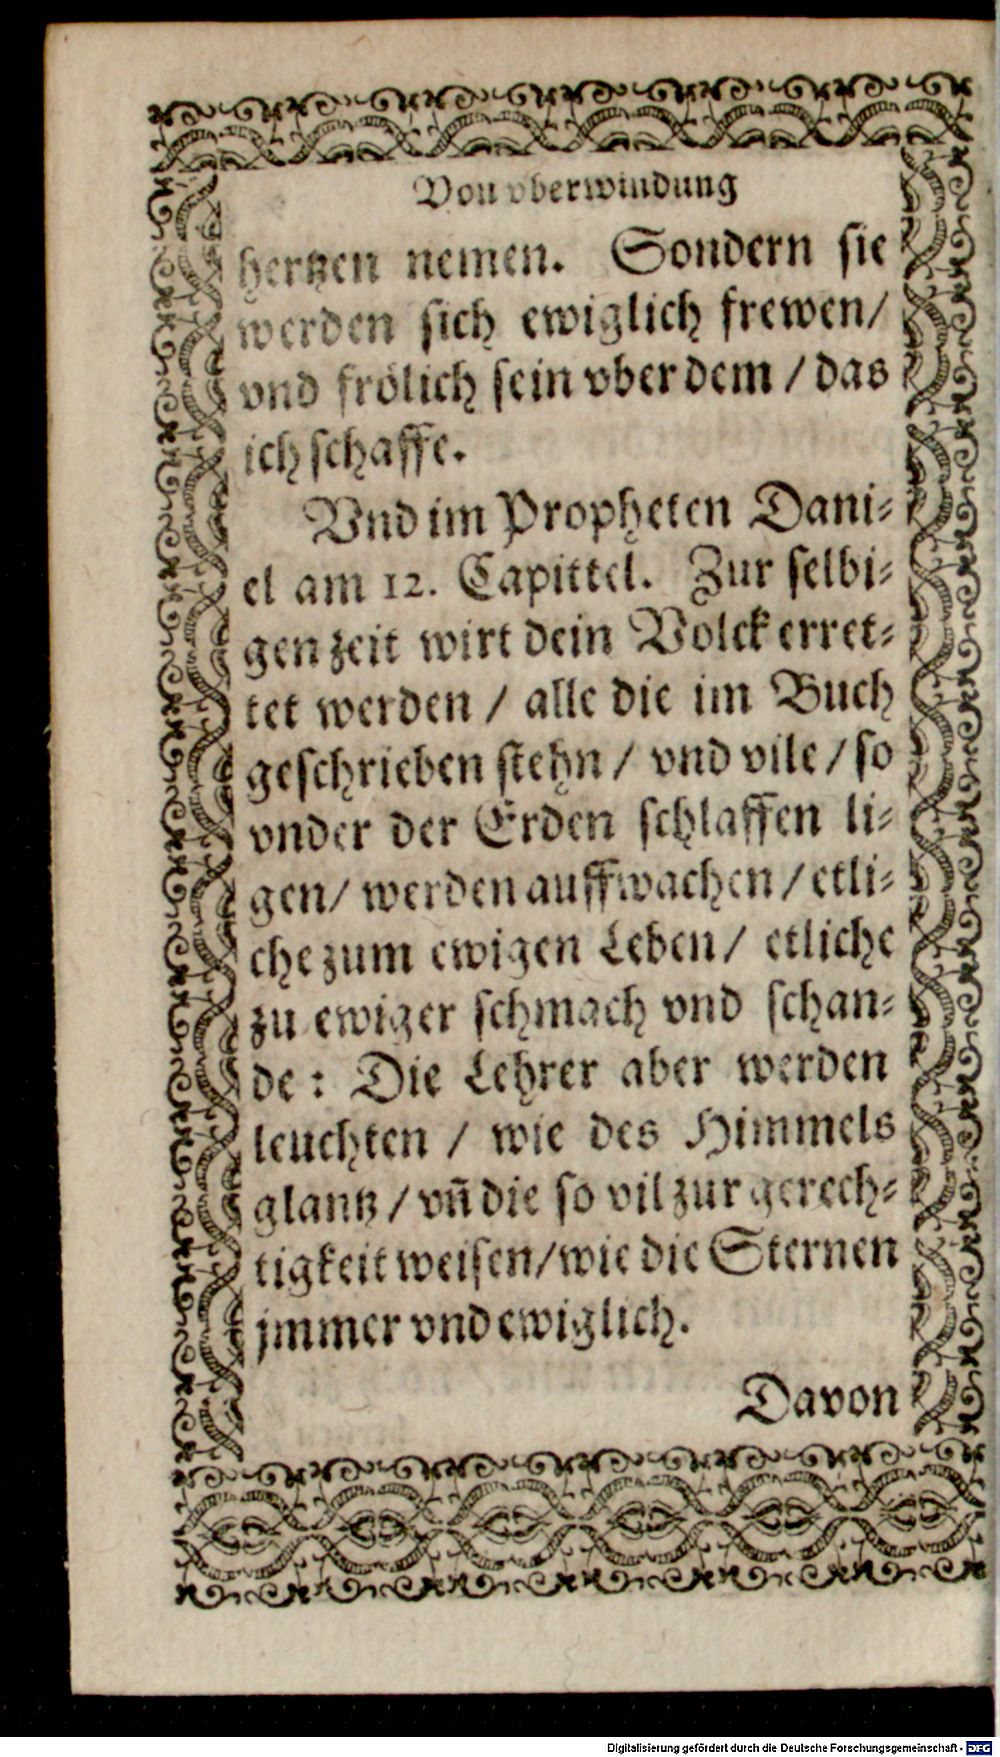 Von vberwindung
hertzen nemen. Sondern sie
werden sich ewiglich frewen/
vnd frölich sein vber dem / das
ich schaffe.
Vnd im Propheten Dani⸗
el am 12. Capittel. Zur selbi⸗
gen zeit wirt dein Volck erret⸗
tet werden / alle die im Buch
geschrieben stehn / vnd vile / so
vnder der Erden schlaffen li⸗
gen/ werden auffwachen / etli⸗
che zum ewigen Leben/ etliche
zu ewiger schmach vnd schan⸗
de : Die Lehrer aber werden
leuchten / wie des Himmels
glantz / vñ die so vil zur gerech⸗
tigkeit weisen/wie die Sternen
jmmer vnd ewiglich.
Davon
Digitalisierung gefördert durch die Deutsche Forschungsgemeinschaft - DFG